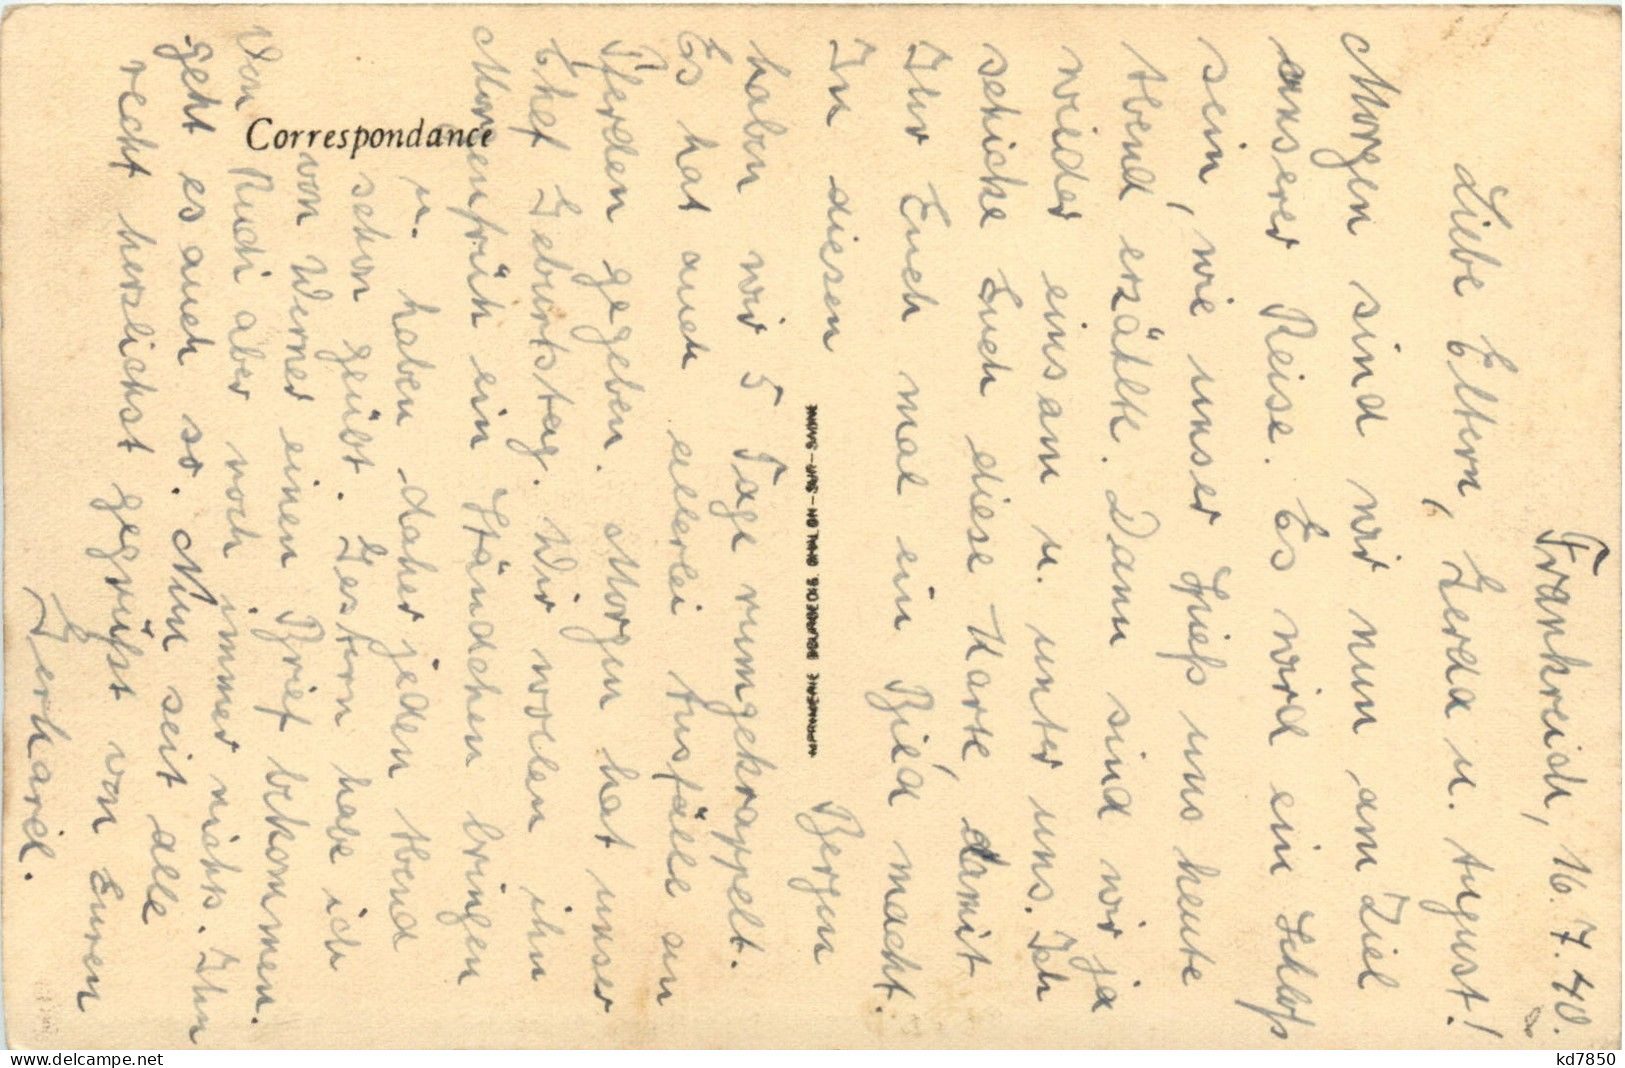 Frankreich, 16.7.40.
Liebe Eltern, Gerda u. August!
Morgen sind wir nun am Ziel
unserer Reise. Es wird ein Schloß
sein, wie unser Spieß uns heute
Abend erzählt. Dann sind wir ja
wieder einsam u. unter uns. Ich
schicke Euch diese Karte, damit
Ihr Euch mal ein Bild macht.
In diesen Bergen
IMPRIMERIE BOURGEOIS CHALON-SUR-SAONE
haben wir 5 Tage rumgekrappelt.
Es hat auch allerlei Ausfälle an
Pferden gegeben. Morgen hat unser
Chef Geburtstag. Wir wollen ihn
Morgenfrüh ein Ständchen bringen
Correspondance
u. haben daher jeden Abend
schon geübt. Gestern habe ich
von Werner einen Brief bekommen.
Von Rudi aber noch immer nichts. Ihn
geht es auch so. Nun seit alle
recht herzlichst gegrüßt von Euren
Gerhard.
kd7850
www.delcampe.net